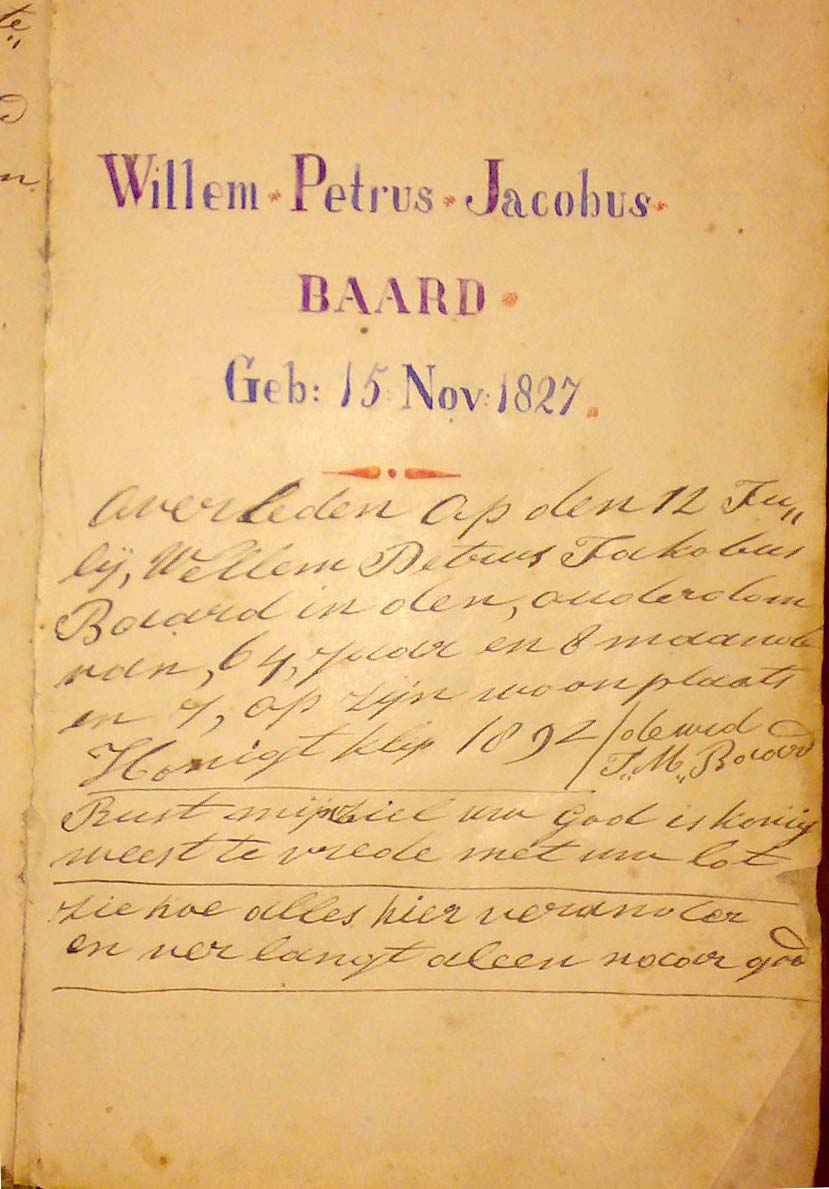 te„
d
n.
Willem * Petrus * Jacobus *
BAARD *
Geb: 15 Nov: 1827.
Overleden op den 12 Ju„
lij, Willem Petrus Jakobus
Baard in den, ouderdom
van, 64, Jaar en 8 maande
en 7, op zijn woonplaats
Honigt klip 1892 / de wed
J„ M„ Baard
Rust mijn ziel uw god is konig
weest te vrede met uw lot
zie hoe alles hier verander
en ver langt aleen naar god